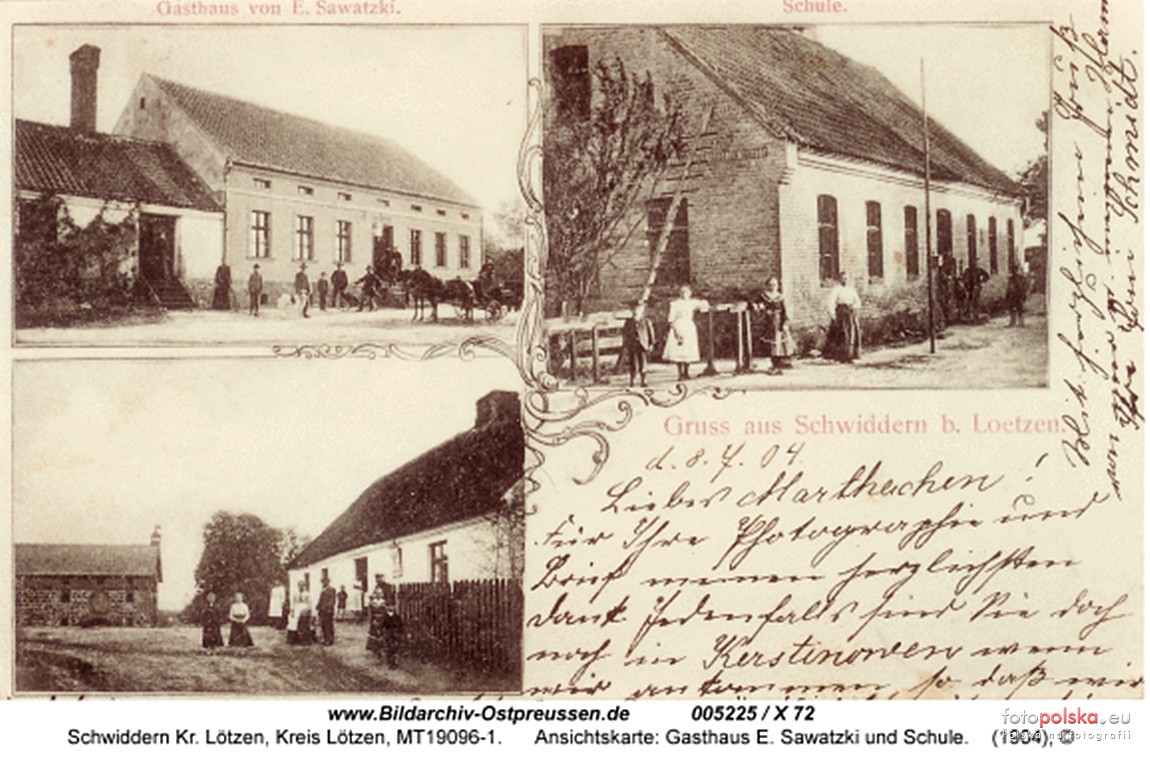 Gasthaus von E. Sawatzki.
Schule.
Gruss aus Schwiddern b. Loetzen.
d. 8. 7. 04.
Liebes Marthachen!
Für Ihre Photographie und
Brief meinen herzlichsten
Dank. Jedenfalls sind Sie doch
noch in Kerstinowen wenn
wir ankommen so daß wir
Mit herzliche Gruß
von
Ihre Schmidt.
www.Bildarchiv-Ostpreussen.de 005225 / X 72
Schwiddern Kr. Lötzen, Kreis Lötzen, MT19096-1. Ansichtskarte: Gasthaus E. Sawatzki und Schule. (1904), ©
fotopolska.eu
Polska na fotografii